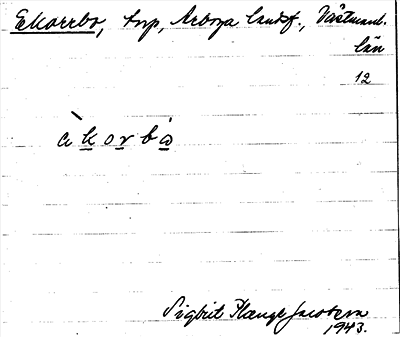 Ekorrbo, torp, Arboga landsf., Västmanl.
län
12
èkorbò
Sigbrit Plænge Jacobson
1943.